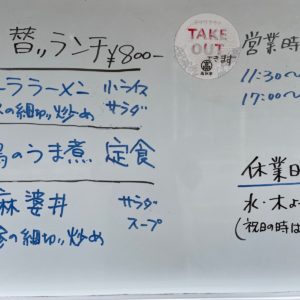 替リランチ ¥800-
ーララーメン 小ライス
の細切リ炒め サラダ
のうま煮 定食
麻婆丼 サラダ
の細切リ炒め スープ
TAKE
OUT
できます
営業時
11:30〜
17:00〜
休業日
水・木よ
(祝日の時は